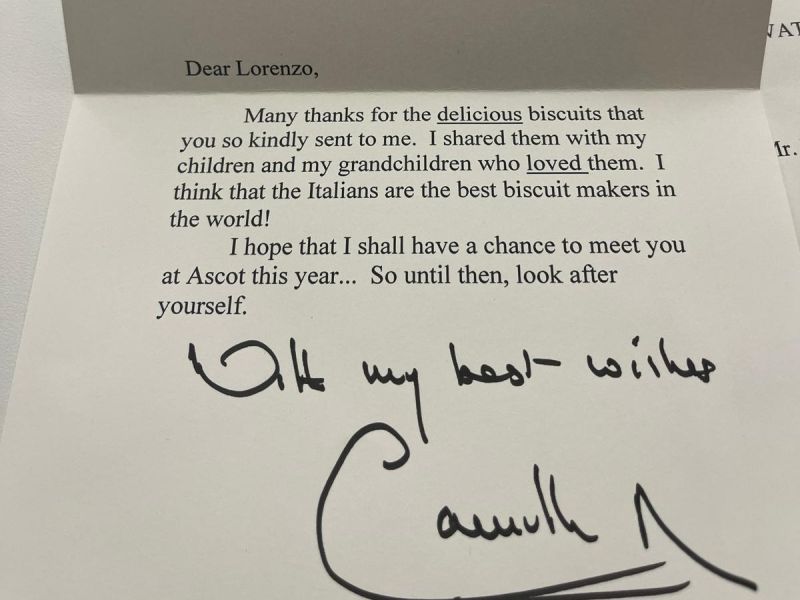 Dear Lorenzo,
Many thanks for the delicious biscuits that
you so kindly sent to me. I shared them with my
children and my grandchildren who loved them. I
think that the Italians are the best biscuit makers in
the world!
I hope that I shall have a chance to meet you
at Ascot this year... So until then, look after
yourself.
With my best wishes
Camilla R